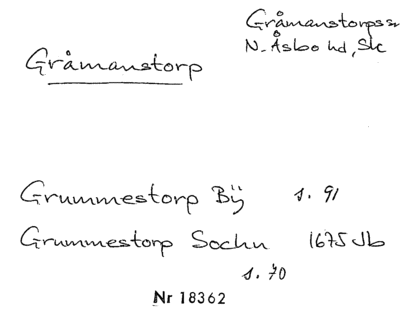 Gråmanstorps sn
N. Åsbo hd, Sk
Gråmanstorp
Grummestorp Bÿ s. 91
Grummestorp Sochn 1675 Jb
s. 70
Nr 18362